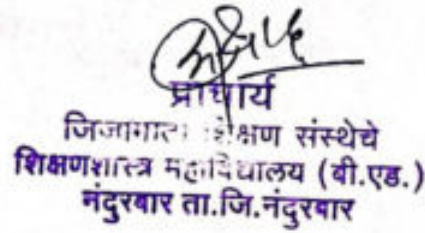 प्राचार्य
जिजामाता शिक्षण संस्थेचे
शिक्षणशास्त्र महाविद्यालय (बी.एड.)
नंदुरबार ता.जि.नंदुरबार